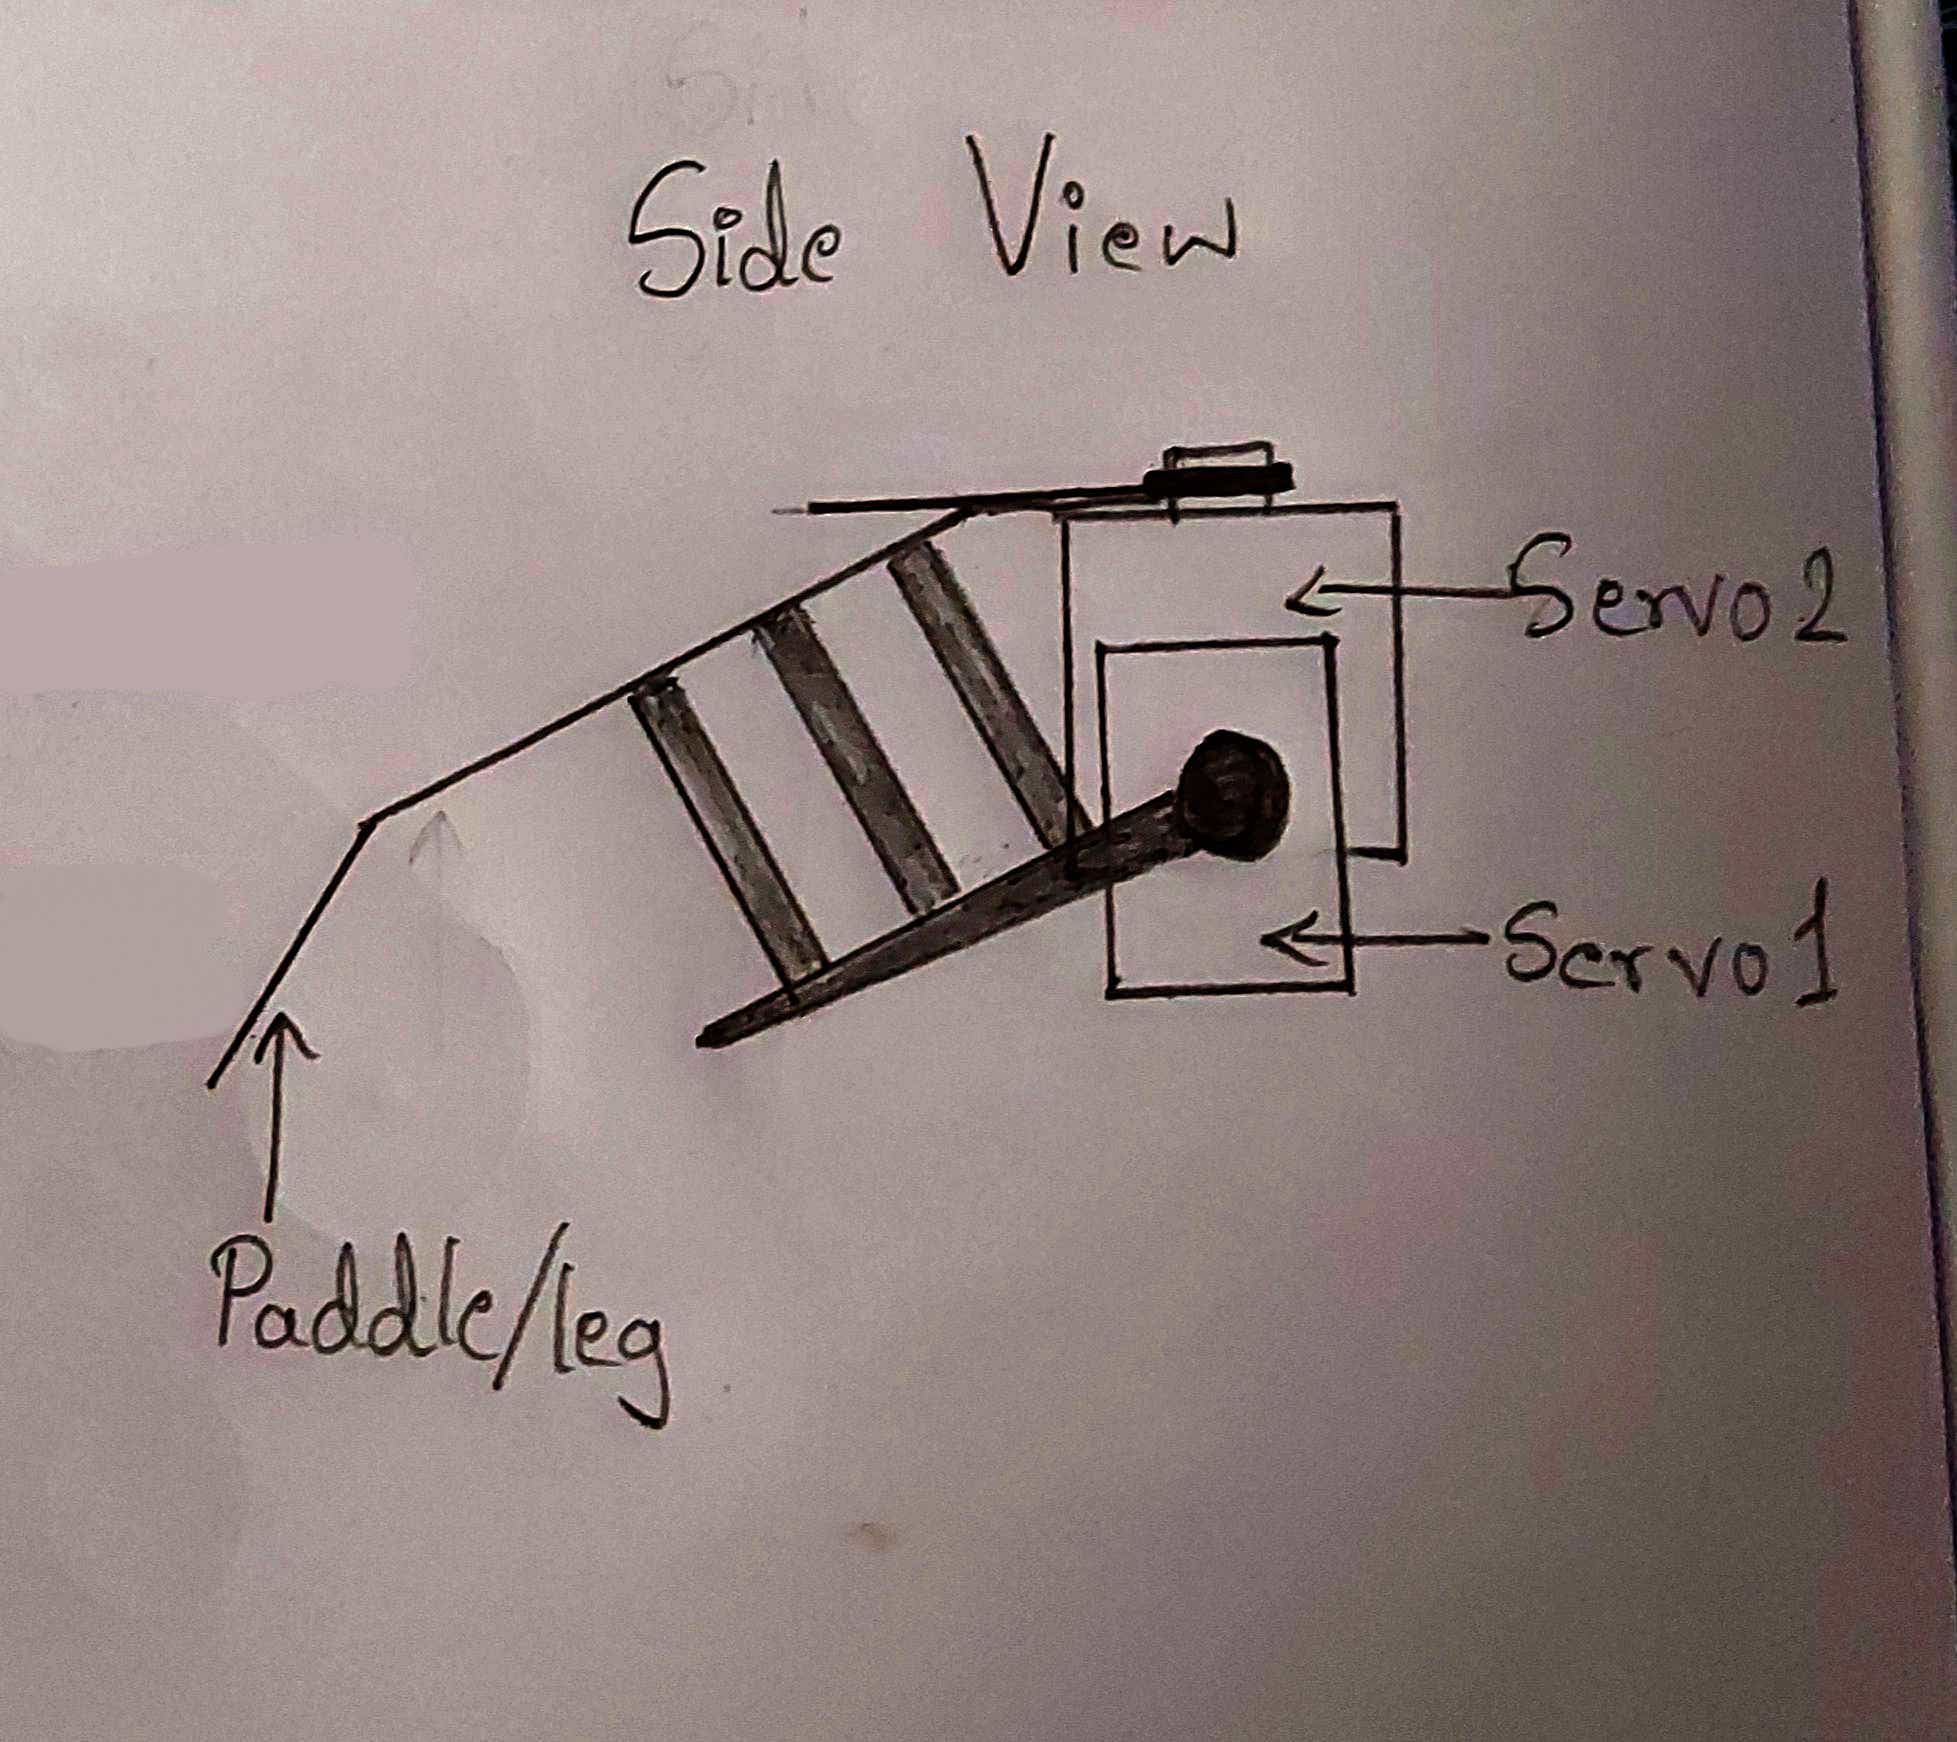 Side View
Servo2
Servo1
Paddle/leg